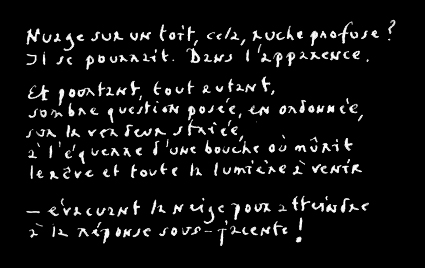 Nuage sur un toit, cela, ruche profuse ?
Il se pourrait. Dans l'apparence.
Et pourtant, tout autant,
sombre question posée, en ordonnée,
sur la verdeur striée,
à l'équerre d'une bouche où mûrit
le rêve et toute la lumière à venir
— évacuant la neige pour atteindre
à la réponse sous-jacente !